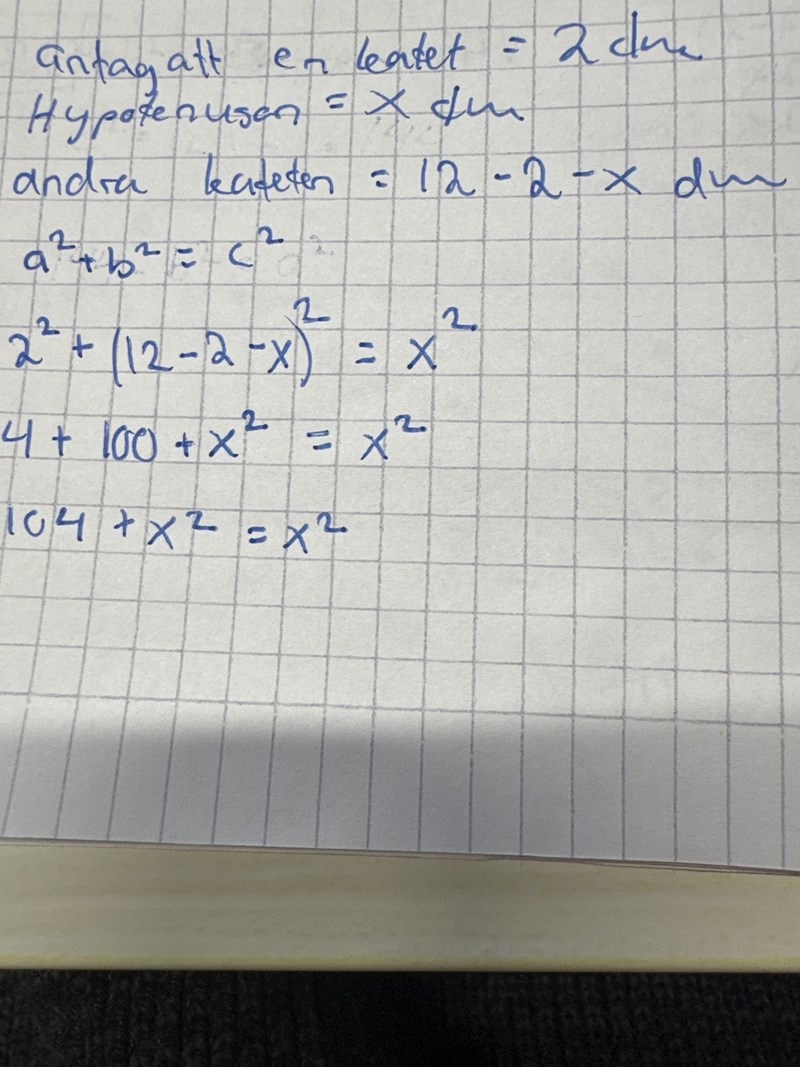 antag att en katet = 2 dm
Hypotenusan = x dm
andra kateten = 12 - 2 - x dm
a² + b² = c²
2² + (12 - 2 - x)² = x²
4 + 100 + x² = x²
104 + x² = x²